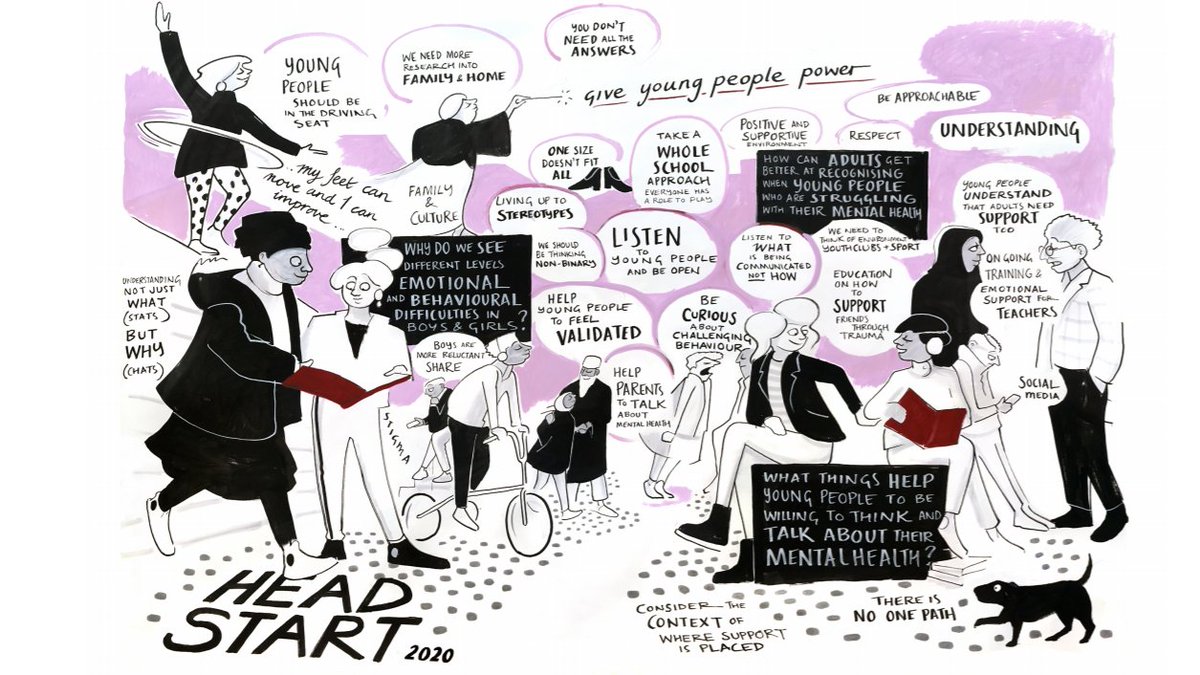 YOU DON'T
NEED ALL THE
ANSWERS
YOUNG
PEOPLE
SHOULD BE
IN THE DRIVING
SEAT
WE NEED MORE
RESEARCH INTO
FAMILY & HOME
give young people power
BE APPROACHABLE
...my feet can
move and I can
improve...
FAMILY
& CULTURE
ONE SIZE
DOESN'T FIT
ALL
TAKE A
WHOLE
SCHOOL
APPROACH
EVERYONE HAS
A ROLE TO PLAY
POSITIVE AND
SUPPORTIVE
ENVIRONMENT
RESPECT
UNDERSTANDING
HOW CAN ADULTS GET
BETTER AT RECOGNISING
WHEN YOUNG PEOPLE
WHO ARE STRUGGLING
WITH THEIR MENTAL HEALTH
YOUNG PEOPLE
UNDERSTAND
THAT ADULTS NEED
SUPPORT
TOO
LIVING UP TO
STEREOTYPES
WHY DO WE SEE
DIFFERENT LEVELS
EMOTIONAL
AND BEHAVIOURAL
DIFFICULTIES IN
BOYS & GIRLS?
WE SHOULD
BE THINKING
NON-BINARY
LISTEN
TO
YOUNG PEOPLE
AND BE OPEN
LISTEN TO
WHAT
IS BEING
COMMUNICATED
NOT HOW
WE NEED TO
THINK OF ENVIRONMENT
YOUTH CLUBS + SPORT
ON GOING
TRAINING &
EMOTIONAL
SUPPORT FOR
TEACHERS
UNDERSTANDING
NOT JUST
WHAT
(STATS)
BUT
WHY
(CHATS)
EDUCATION
ON HOW
TO
SUPPORT
FRIENDS
THROUGH
TRAUMA
HELP
YOUNG PEOPLE
TO FEEL
VALIDATED
BE
CURIOUS
ABOUT
CHALLENGING
BEHAVIOUR
BOYS ARE
MORE RELUCTANT
SHARE
HELP
PARENTS
TO TALK
ABOUT
MENTAL HEALTH
SOCIAL
MEDIA
STIGMA
WHAT THINGS HELP
YOUNG PEOPLE TO BE
WILLING TO THINK AND
TALK ABOUT THEIR
MENTAL HEALTH?
HEAD
START 2020
CONSIDER THE
CONTEXT OF
WHERE SUPPORT
IS PLACED
THERE IS
NO ONE PATH